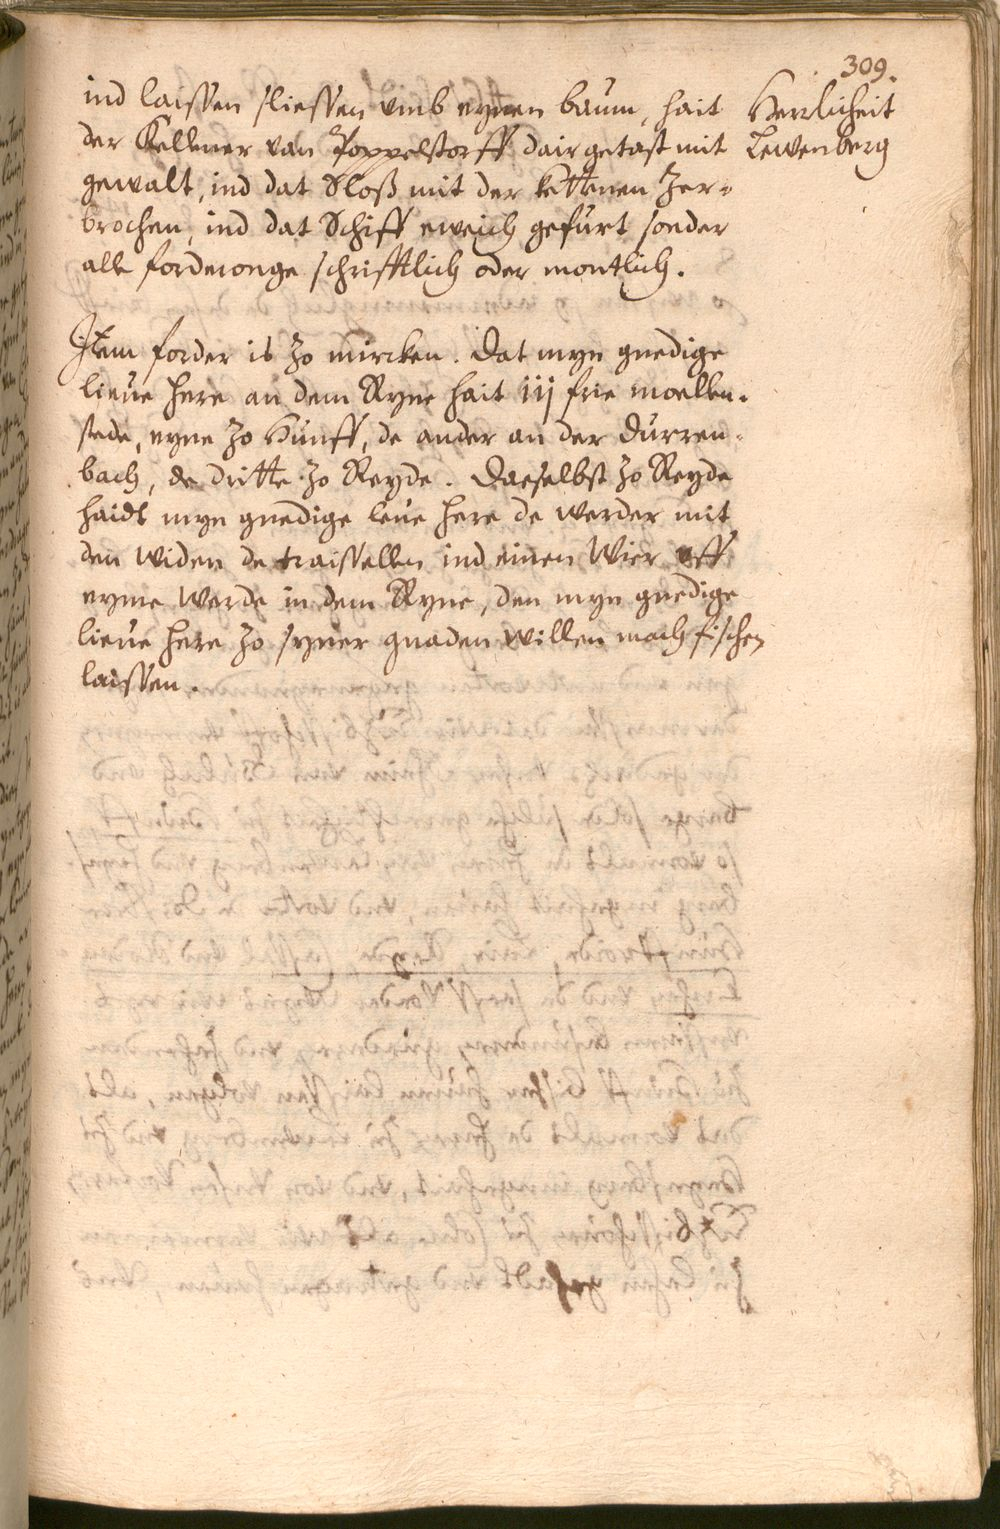 309.
Herrlicheit
Lewenberg
ind laissen sliessen umb eynen baum, hait
der Kellner van Poppelstorff dair getast mit
gewalt, ind dat Sloß mit der kettenen Zer-
brochen, ind dat Schiff eweich gefurt sonder
alle forderonge schrifftlich oder montlich.
Item forder is zo mircken. Dat myn gnedige
lieue here an dem Ryne hait iij frie moellen-
stede, eyne zo Hunff, de ander an der Durren-
bach, de dritte zo Reyde. Daeselbst zo Reyde
haidt myn gnedige leue here de werder mit
den widen de traissellen ind einen Wier off
eyme werde in dem Ryne, den myn gnedige
lieue here zo syner gnaden willen mach fischen
laissen.